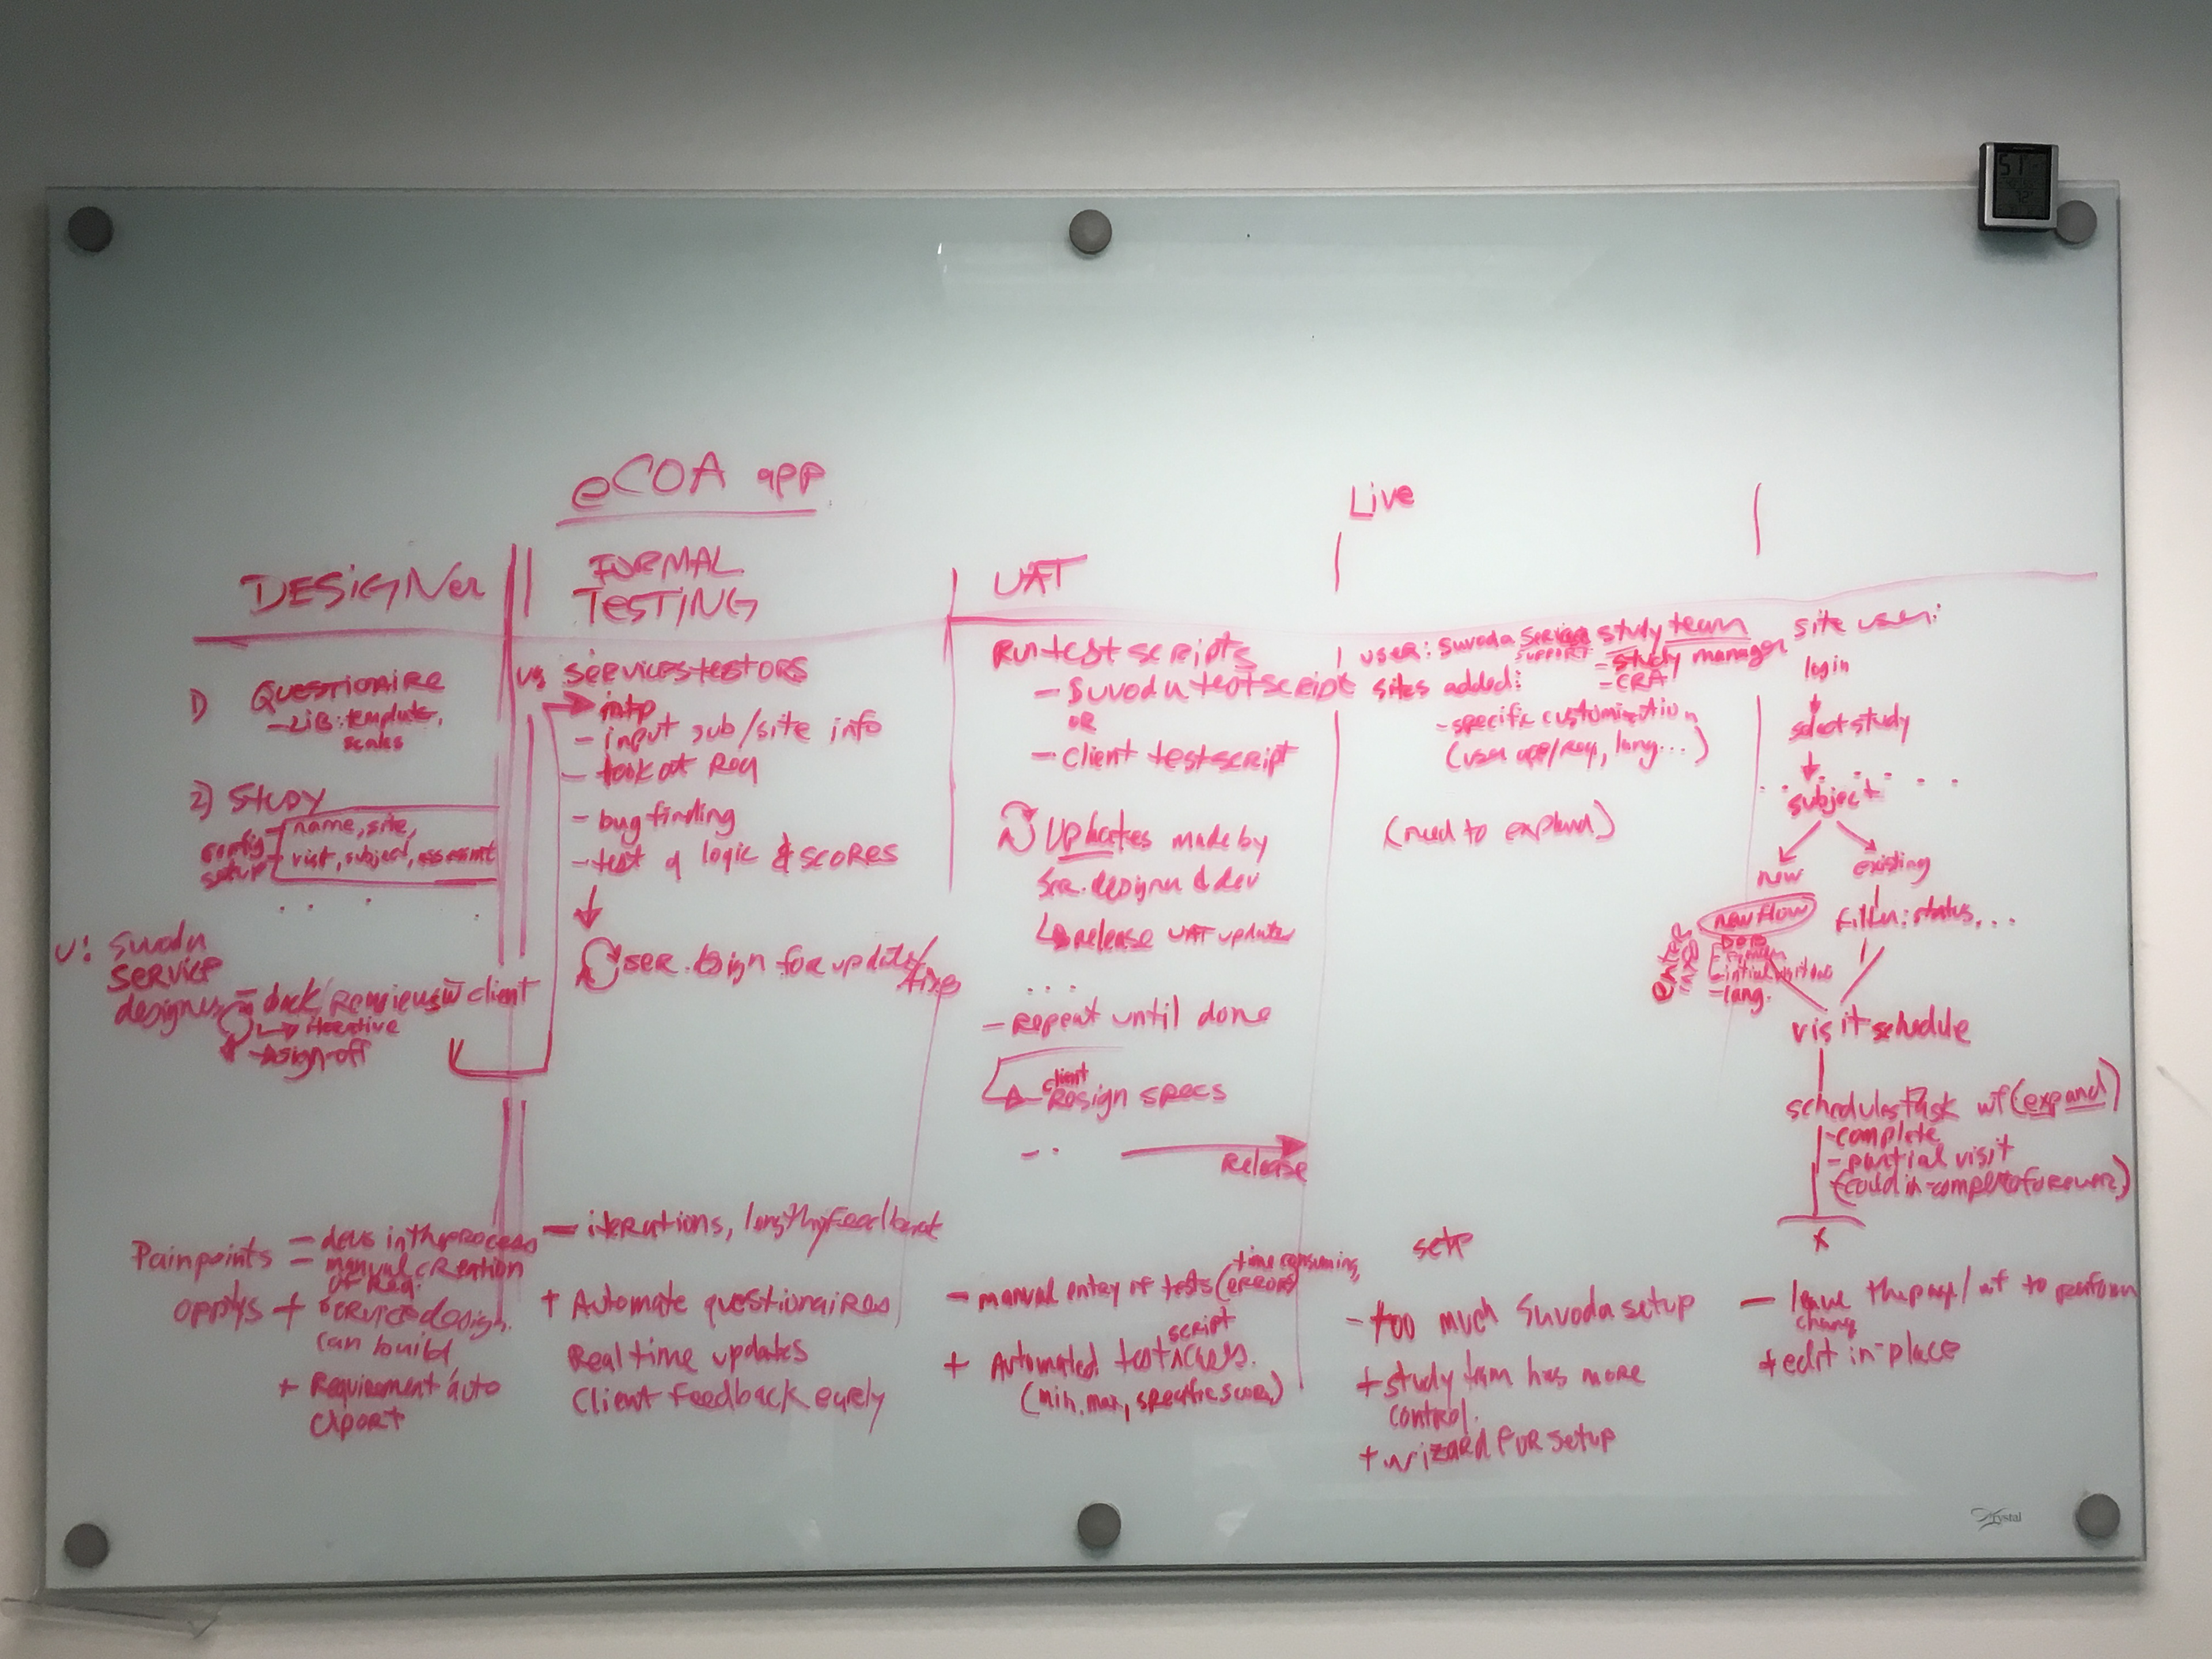 eCOA app
Live
DESIGNer
FORMAL
TESTING
UAT
1) QUESTIONAIRE
- LIB: template,
scales
2) STUDY
config
setup
name, site,
visit, subject, assesmt
U: Suvoda
SERVICE
designer
client
iterative
sign-off
U: SERVICES testORS
- input sub/site info
- look at Req
- bug finding
- test of logic & SCORES
SER. design for update/
fixes
Run test scripts
- Suvoda testscript
OR
- client testscript
Updates made by
Ser. designer & dev
release UAT update
...
- Repeat until done
client
Resign specs
Release
USER: Suvoda Service study team
SUPPORT
- study manager
- CRA
sites added:
- specific customization
(user app/req, lang...)
(need to expand)
site user:
login
select study
subject
new
existing
new flow
filter: status, ...
ENTER
DOB
- initial visit date
- lang.
visit schedule
schedules task wf (expand)
- complete
- partial visit
(could in-complete forever)
x
Painpoints
- devs in the process
- manual creation
of Req.
opptys
+ Service design.
can build
+ Requirement auto
export
- iterations, lengthy feedback
+ Automate questionaires
Real time updates
Client Feedback early
- manual entry of tests (errors)
time consuming,
+ Automated test
script
(min, max, specific score)
setup
- too much Suvoda setup
+ study team has more
control.
+ wizard FOR setup
- leave the page/wf to perform
change
+ edit in-place
51
Krystal